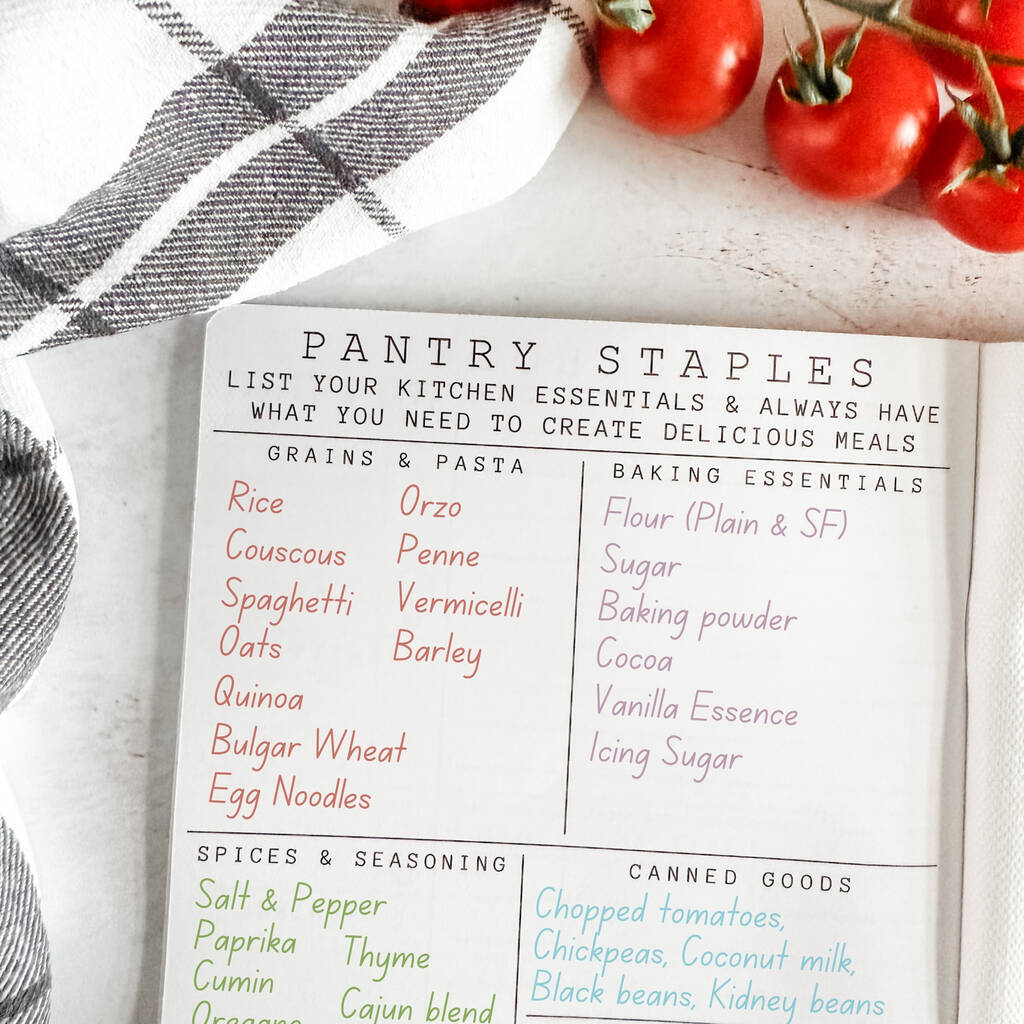 PANTRY STAPLES
LIST YOUR KITCHEN ESSENTIALS & ALWAYS HAVE
WHAT YOU NEED TO CREATE DELICIOUS MEALS
GRAINS & PASTA
Rice
Couscous
Spaghetti
Oats
Quinoa
Bulgar Wheat
Egg Noodles
Orzo
Penne
Vermicelli
Barley
BAKING ESSENTIALS
Flour (Plain & SF)
Sugar
Baking powder
Cocoa
Vanilla Essence
Icing Sugar
SPICES & SEASONING
Salt & Pepper
Paprika
Cumin
Oregano
Thyme
Cajun blend
CANNED GOODS
Chopped tomatoes,
Chickpeas, Coconut milk,
Black beans, Kidney beans